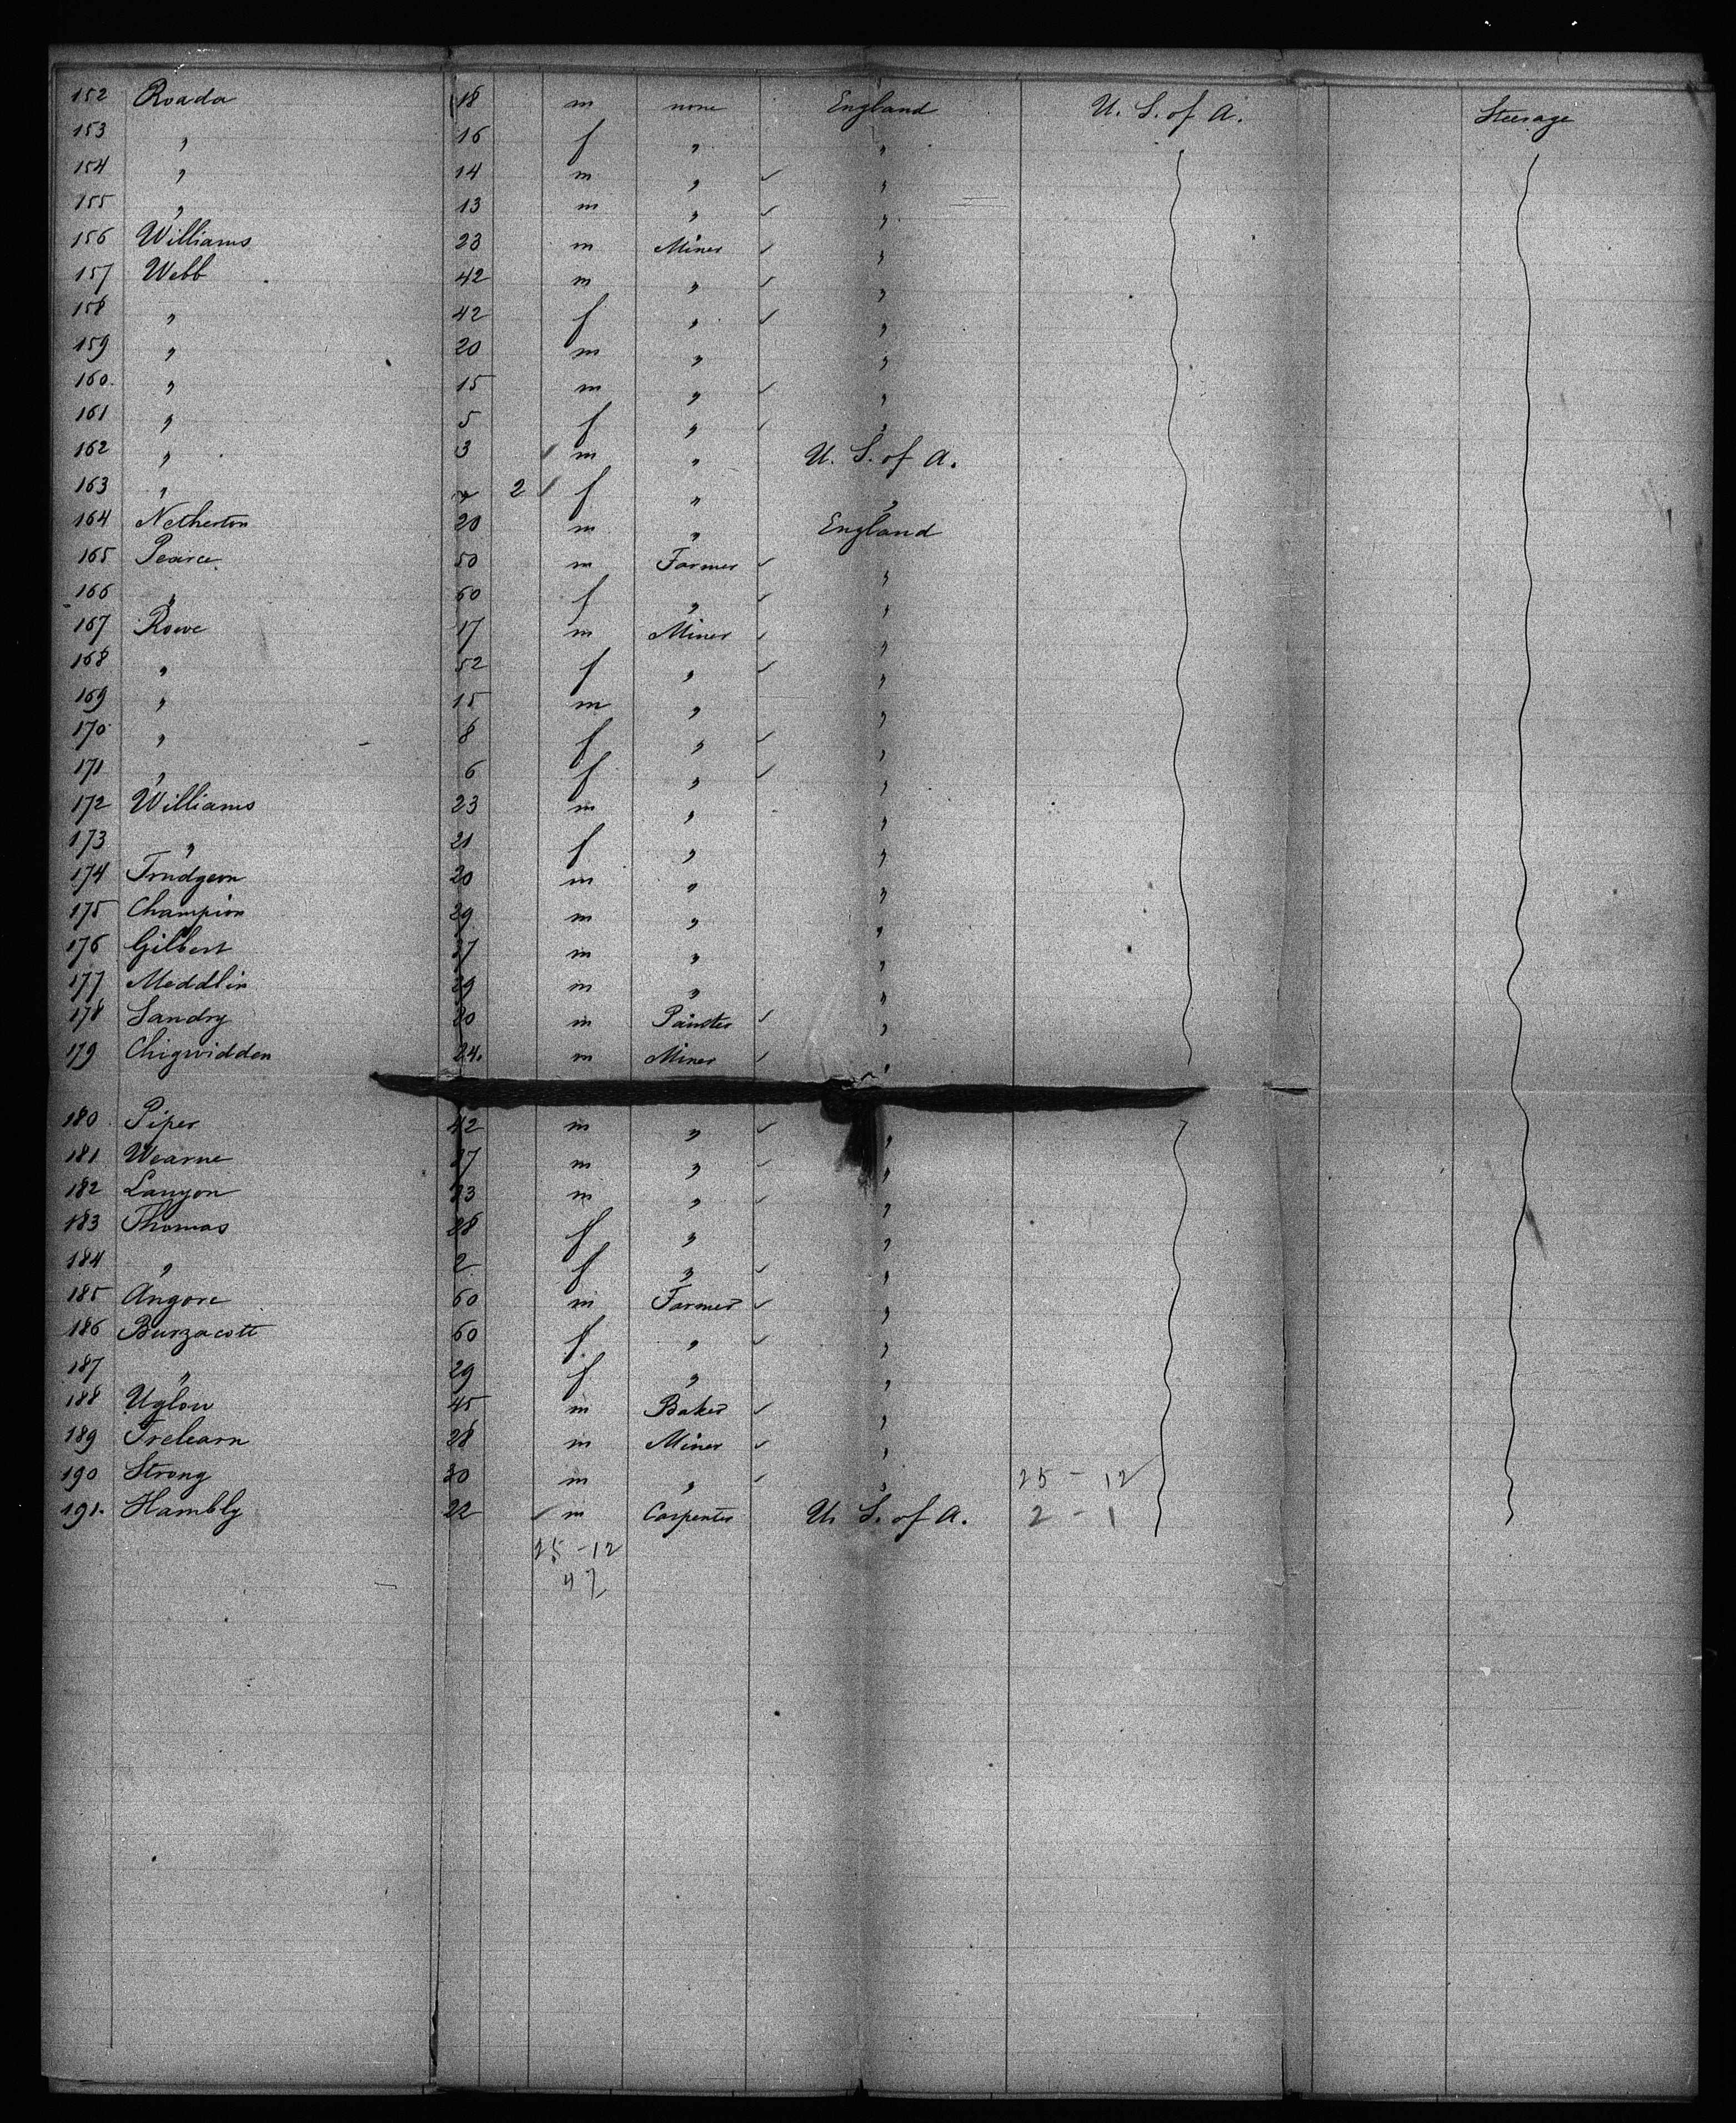 152 Roada 18 m none England U. S. of A. Steerage
153 " 16 f " "
154 " 14 m " ✓ "
155 " 13 m " ✓ "
156 Williams 23 m Miner ✓ "
157 Webb 42 m " ✓ "
158 " 42 f " ✓ "
159 " 20 m " "
160. " 15 m " ✓ "
161 " 5 f " ✓ "
162 " 3 ✓ m " U. S. of A.
163 " 2 ✓ f " "
164 Netherton 20 m " England
165 Pearce 50 m Farmer ✓ "
166 " 60 f " ✓ "
167 Rowe 17 m Miner ✓ "
168 " 52 f " ✓ "
169 " 15 m " "
170 " 8 f " ✓ "
171 " 6 f " ✓ "
172 Williams 23 m " "
173 " 21 f " "
174 Trudgeon 20 m " "
175 Champion 29 m " "
176 Gilbert m " "
177 Meddlin m " "
178 Sandry 20 m Painter ✓ "
179 Chigwidden 24. m Miner ✓ "
180 Piper 42 m " ✓ "
181 Wearne m " ✓ "
182 Lanyon m " ✓ "
183 Thomas 28 f " "
184 " 2 f " ✓ "
185 Angove 60 m Farmer ✓ "
186 Burzacott 60 f " ✓ "
187 " 29 f " "
188 Uglow 45 m Baker ✓ "
189 Trelearn 28 m Miner ✓ "
190 Strong 30 m " ✓ " 25 - 12
191. Hambly 22 ✓ m Carpenter U. S. of A. 2 - 1
25 - 12